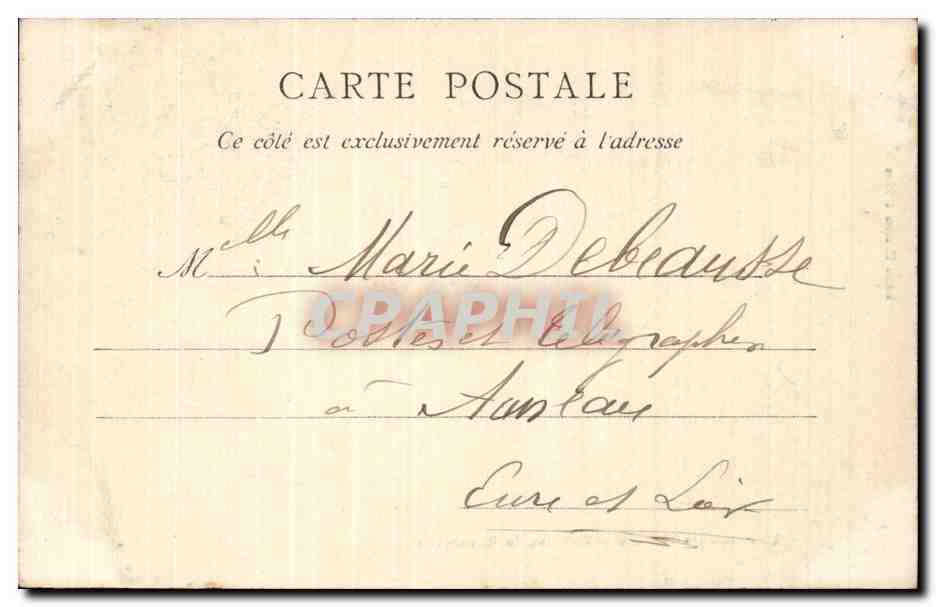 CARTE POSTALE
Ce côté est exclusivement réservé à l'adresse
Melle Marie Debeausse
CPAPHIL
Postes et Télégraphes
à Auneau
Eure et Loir